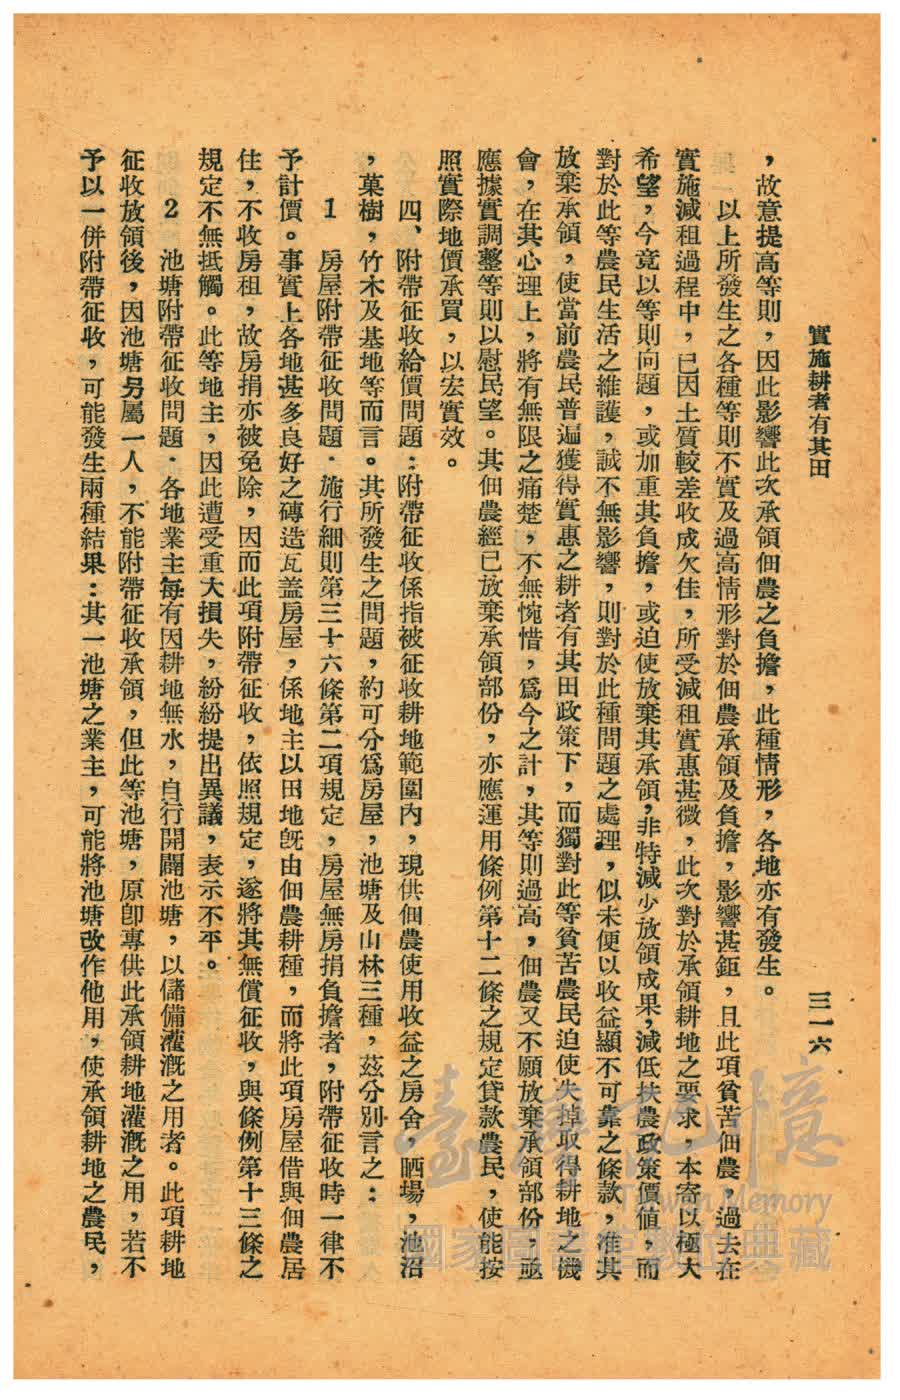 實施耕者有其田
三一六
，故意提高等則，因此影響此次承領佃農之負擔，此種情形，各地亦有發生。
以上所發生之各種等則不實及過高情形對於佃農承領及負擔，影響甚鉅，且此項貧苦佃農，過去在
實施減租過程中，已因土質較差收成欠佳，所受減租實惠甚微，此次對於承領耕地之要求，本寄以極大
希望，今竟以等則問題，或加重其負擔，或迫使放棄其承領，非特減少放領成果，減低扶農政策價值，而
對於此等農民生活之維護，誠不無影響，則對於此種問題之處理，似未便以收益顯不可靠之條款，准其
放棄承領，使當前農民普遍獲得實惠之耕者有其田政策下，而獨對此等貧苦農民迫使失掉取得耕地之機
會，在其心理上，將有無限之痛楚，不無惋惜，爲今之計，其等則過高，佃農又不願放棄承領部份，亟
應據實調整等則以慰民望。其佃農經已放棄承領部份，亦應運用條例第十二條之規定貸款農民，使能按
照實際地價承買，以宏實效。
四、附帶征收給價問題：附帶征收係指被征收耕地範圍內，現供佃農使用收益之房舍，晒場，池沼
，菓樹，竹木及基地等而言。其所發生之問題，約可分爲房屋，池塘及山林三種，茲分別言之：
1 房屋附帶征收問題．施行細則第三十六條第二項規定，房屋無房捐負擔者，附帶征收時一律不
予計價。事實上各地甚多良好之磚造瓦蓋房屋，係地主以田地旣由佃農耕種，而將此項房屋借與佃農居
住，不收房租，故房捐亦被免除，因而此項附帶征收，依照規定，遂將其無償征收，與條例第十三條之
規定不無抵觸。此等地主，因此遭受重大損失，紛紛提出異議，表示不平。
2 池塘附帶征收問題．各地業主每有因耕地無水，自行開闢池塘，以儲備灌漑之用者。此項耕地
征收放領後，因池塘另屬一人，不能附帶征收承領，但此等池塘，原卽專供此承領耕地灌漑之用，若不
予以一併附帶征收，可能發生兩種結果：其一池塘之業主，可能將池塘改作他用，使承領耕地之農民，
臺灣記憶
Taiwan Memory
國家圖書館數位典藏